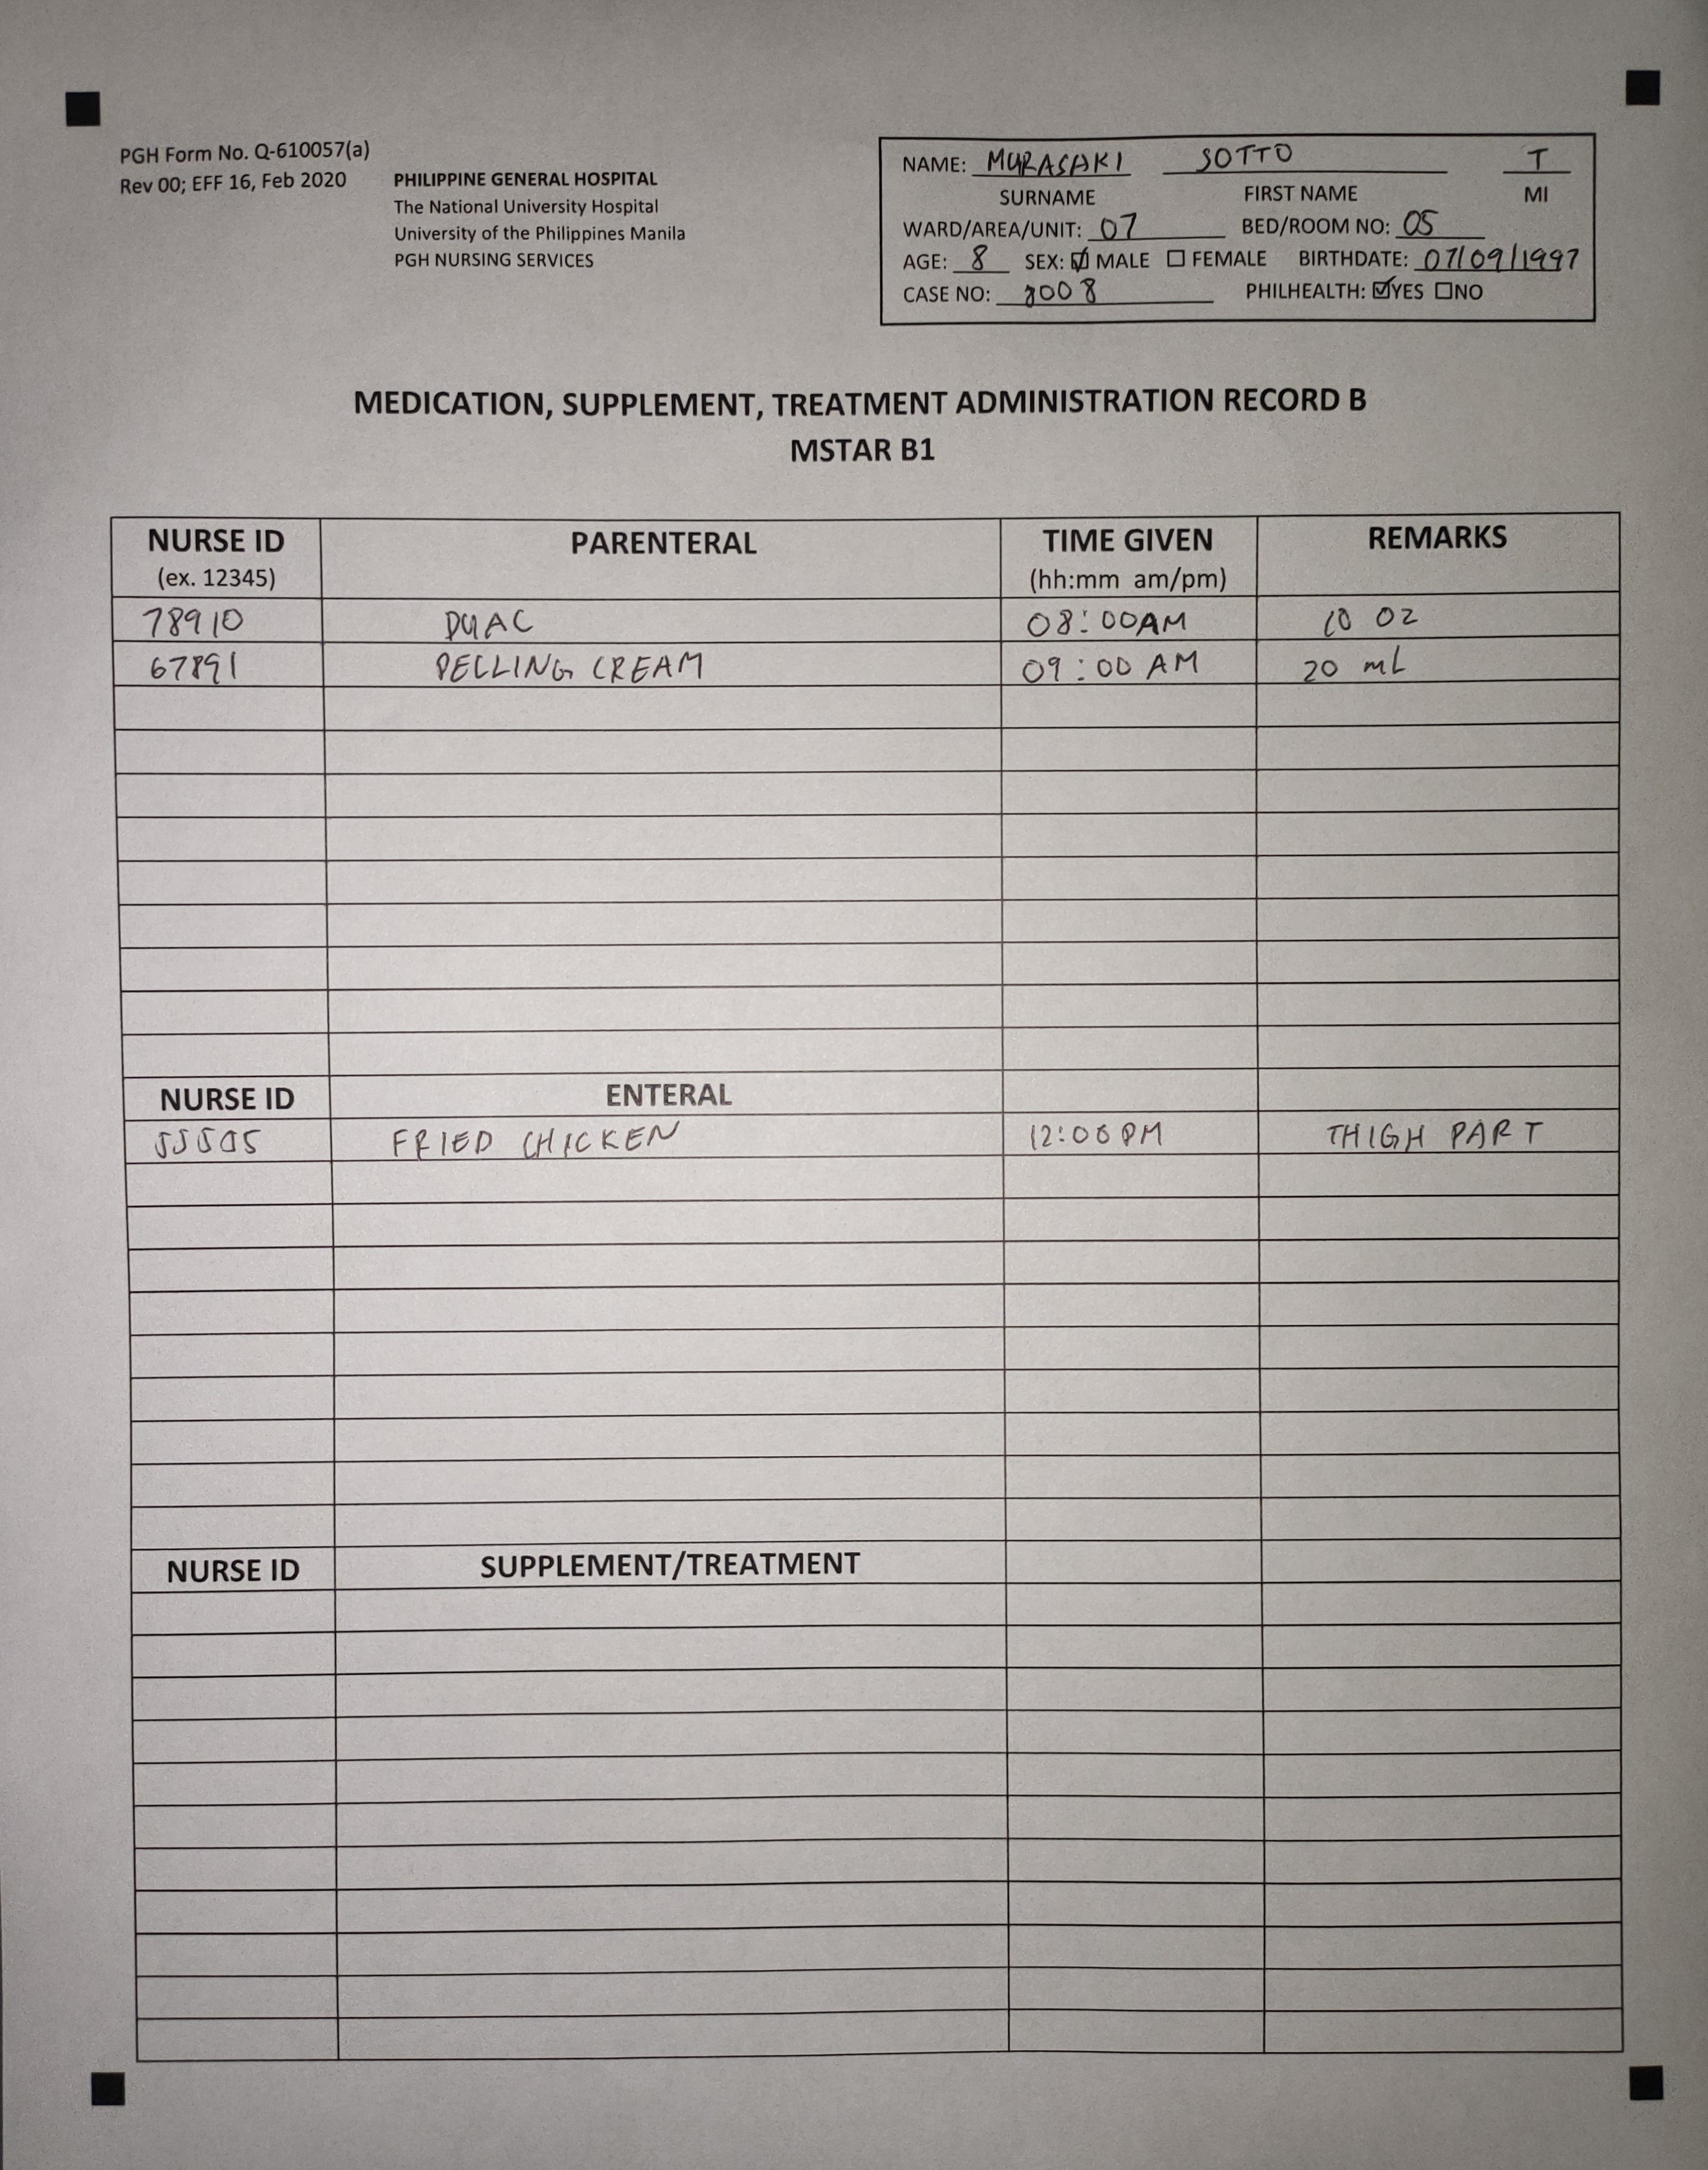 PGH Form No. Q-610057(a)
Rev 00; EFF 16, Feb 2020
PHILIPPINE GENERAL HOSPITAL
The National University Hospital
University of the Philippines Manila
PGH NURSING SERVICES
NAME: MURASAKI SOTTO T
SURNAME FIRST NAME MI
WARD/AREA/UNIT: 07 BED/ROOM NO: 05
AGE: 8 SEX: ☑ MALE ☐ FEMALE BIRTHDATE: 07/09/1997
CASE NO: 8008 PHILHEALTH: ☑YES ☐NO
MEDICATION, SUPPLEMENT, TREATMENT ADMINISTRATION RECORD B
MSTAR B1
NURSE ID PARENTERAL TIME GIVEN REMARKS
(ex. 12345) (hh:mm am/pm)
78910 DUAC 08:00AM 10 OZ
67891 PELLING CREAM 09:00 AM 20 mL
NURSE ID ENTERAL
55505 FRIED CHICKEN 12:00PM THIGH PART
NURSE ID SUPPLEMENT/TREATMENT